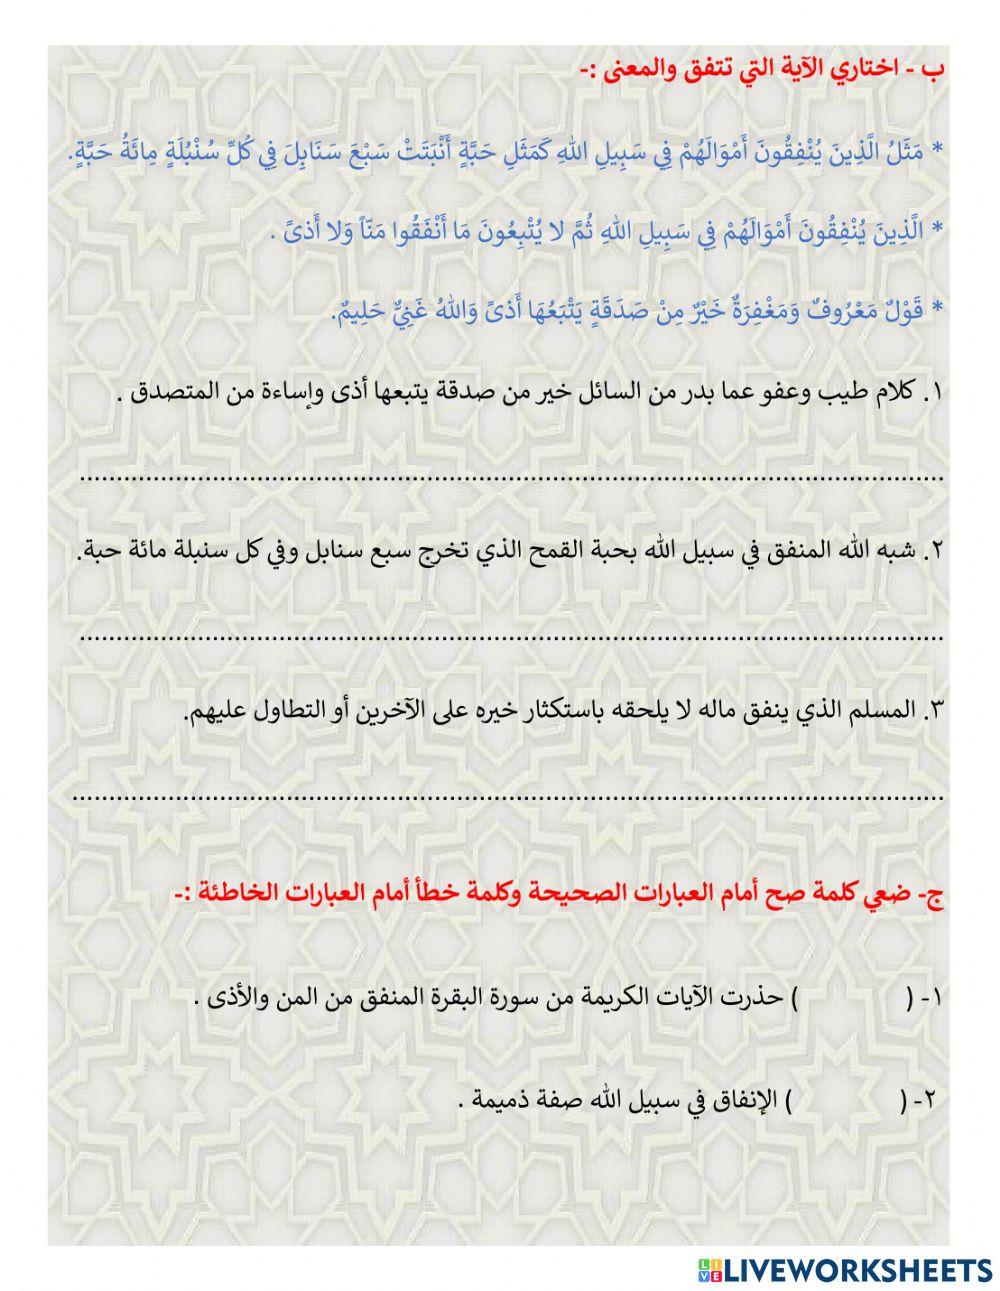 ب - اختاري الآية التي تتفق والمعنى :-
* مَثَلُ الَّذِينَ يُنْفِقُونَ أَمْوَالَهُمْ فِي سَبِيلِ اللهِ كَمَثَلِ حَبَّةٍ أَنْبَتَتْ سَبْعَ سَنَابِلَ فِي كُلِّ سُنْبُلَةٍ مِائَةُ حَبَّةٍ.
* الَّذِينَ يُنْفِقُونَ أَمْوَالَهُمْ فِي سَبِيلِ اللهِ ثُمَّ لا يُتْبِعُونَ مَا أَنْفَقُوا مَنّاً وَلا أَذىً .
* قَوْلٌ مَعْرُوفٌ وَمَغْفِرَةٌ خَيْرٌ مِنْ صَدَقَةٍ يَتْبَعُهَا أَذىً وَاللهُ غَنِيٌّ حَلِيمٌ.
١. كلام طيب وعفو عما بدر من السائل خير من صدقة يتبعها أذى وإساءة من المتصدق .
................................................................................
٢. شبه الله المنفق في سبيل الله بحبة القمح الذي تخرج سبع سنابل وفي كل سنبلة مائة حبة.
................................................................................
٣. المسلم الذي ينفق ماله لا يلحقه باستكثار خيره على الآخرين أو التطاول عليهم.
................................................................................
ج- ضعي كلمة صح أمام العبارات الصحيحة وكلمة خطأ أمام العبارات الخاطئة :-
١- ( ) حذرت الآيات الكريمة من سورة البقرة المنفق من المن والأذى .
٢- ( ) الإنفاق في سبيل الله صفة ذميمة .
LIVE LIVEWORKSHEETS